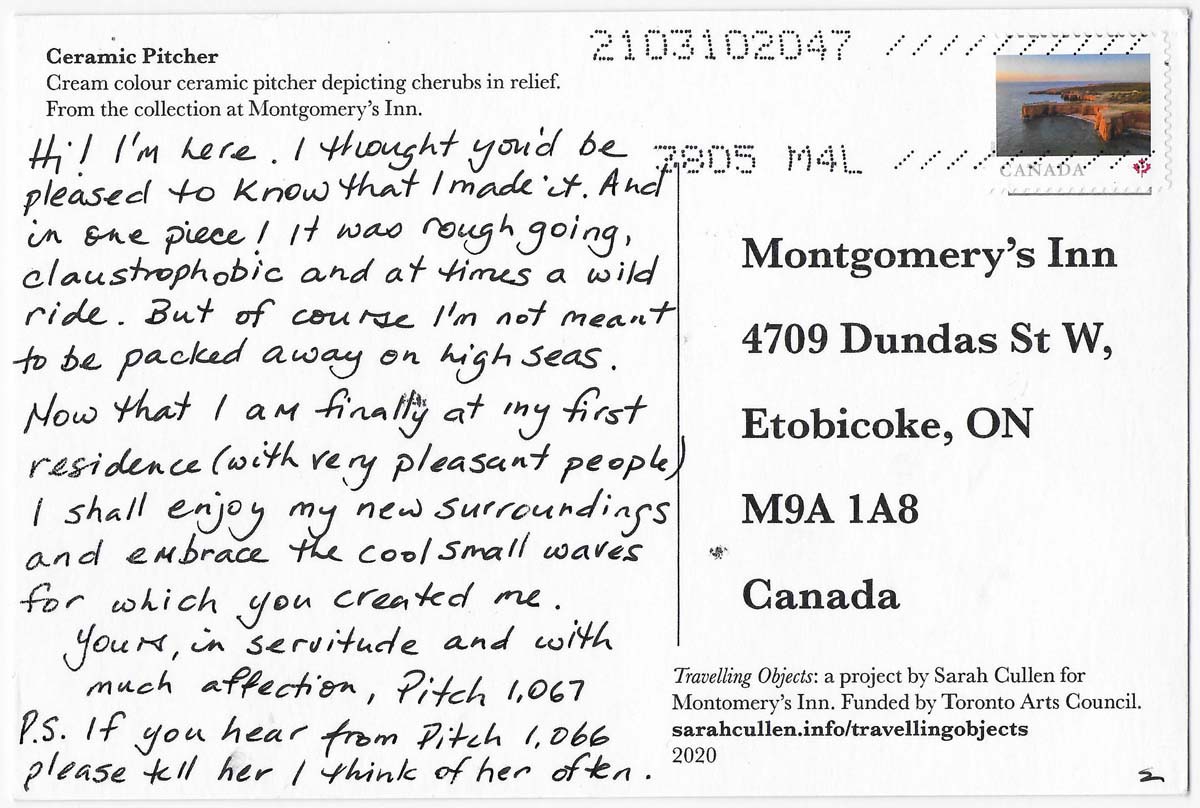 2103102047
Ceramic Pitcher
Cream colour ceramic pitcher depicting cherubs in relief.
From the collection at Montgomery's Inn.
M4L
CANADA
Hi! I'm here. I thought you'd be
pleased to know that I made it. And
in one piece! It was rough going,
claustrophobic and at times a wild
ride. But of course I'm not meant
to be packed away on high seas.
Now that I am finally at my first
residence (with very pleasant people)
I shall enjoy my new surroundings
and embrace the cool small waves
for which you created me.
Yours, in servitude and with
much affection, Pitch 1,067
P.S. If you hear from Pitch 1,066
please tell her I think of her often.
Montgomery's Inn
4709 Dundas St W,
Etobicoke, ON
M9A 1A8
Canada
Travelling Objects: a project by Sarah Cullen for
Montomery's Inn. Funded by Toronto Arts Council.
sarahcullen.info/travellingobjects
2020